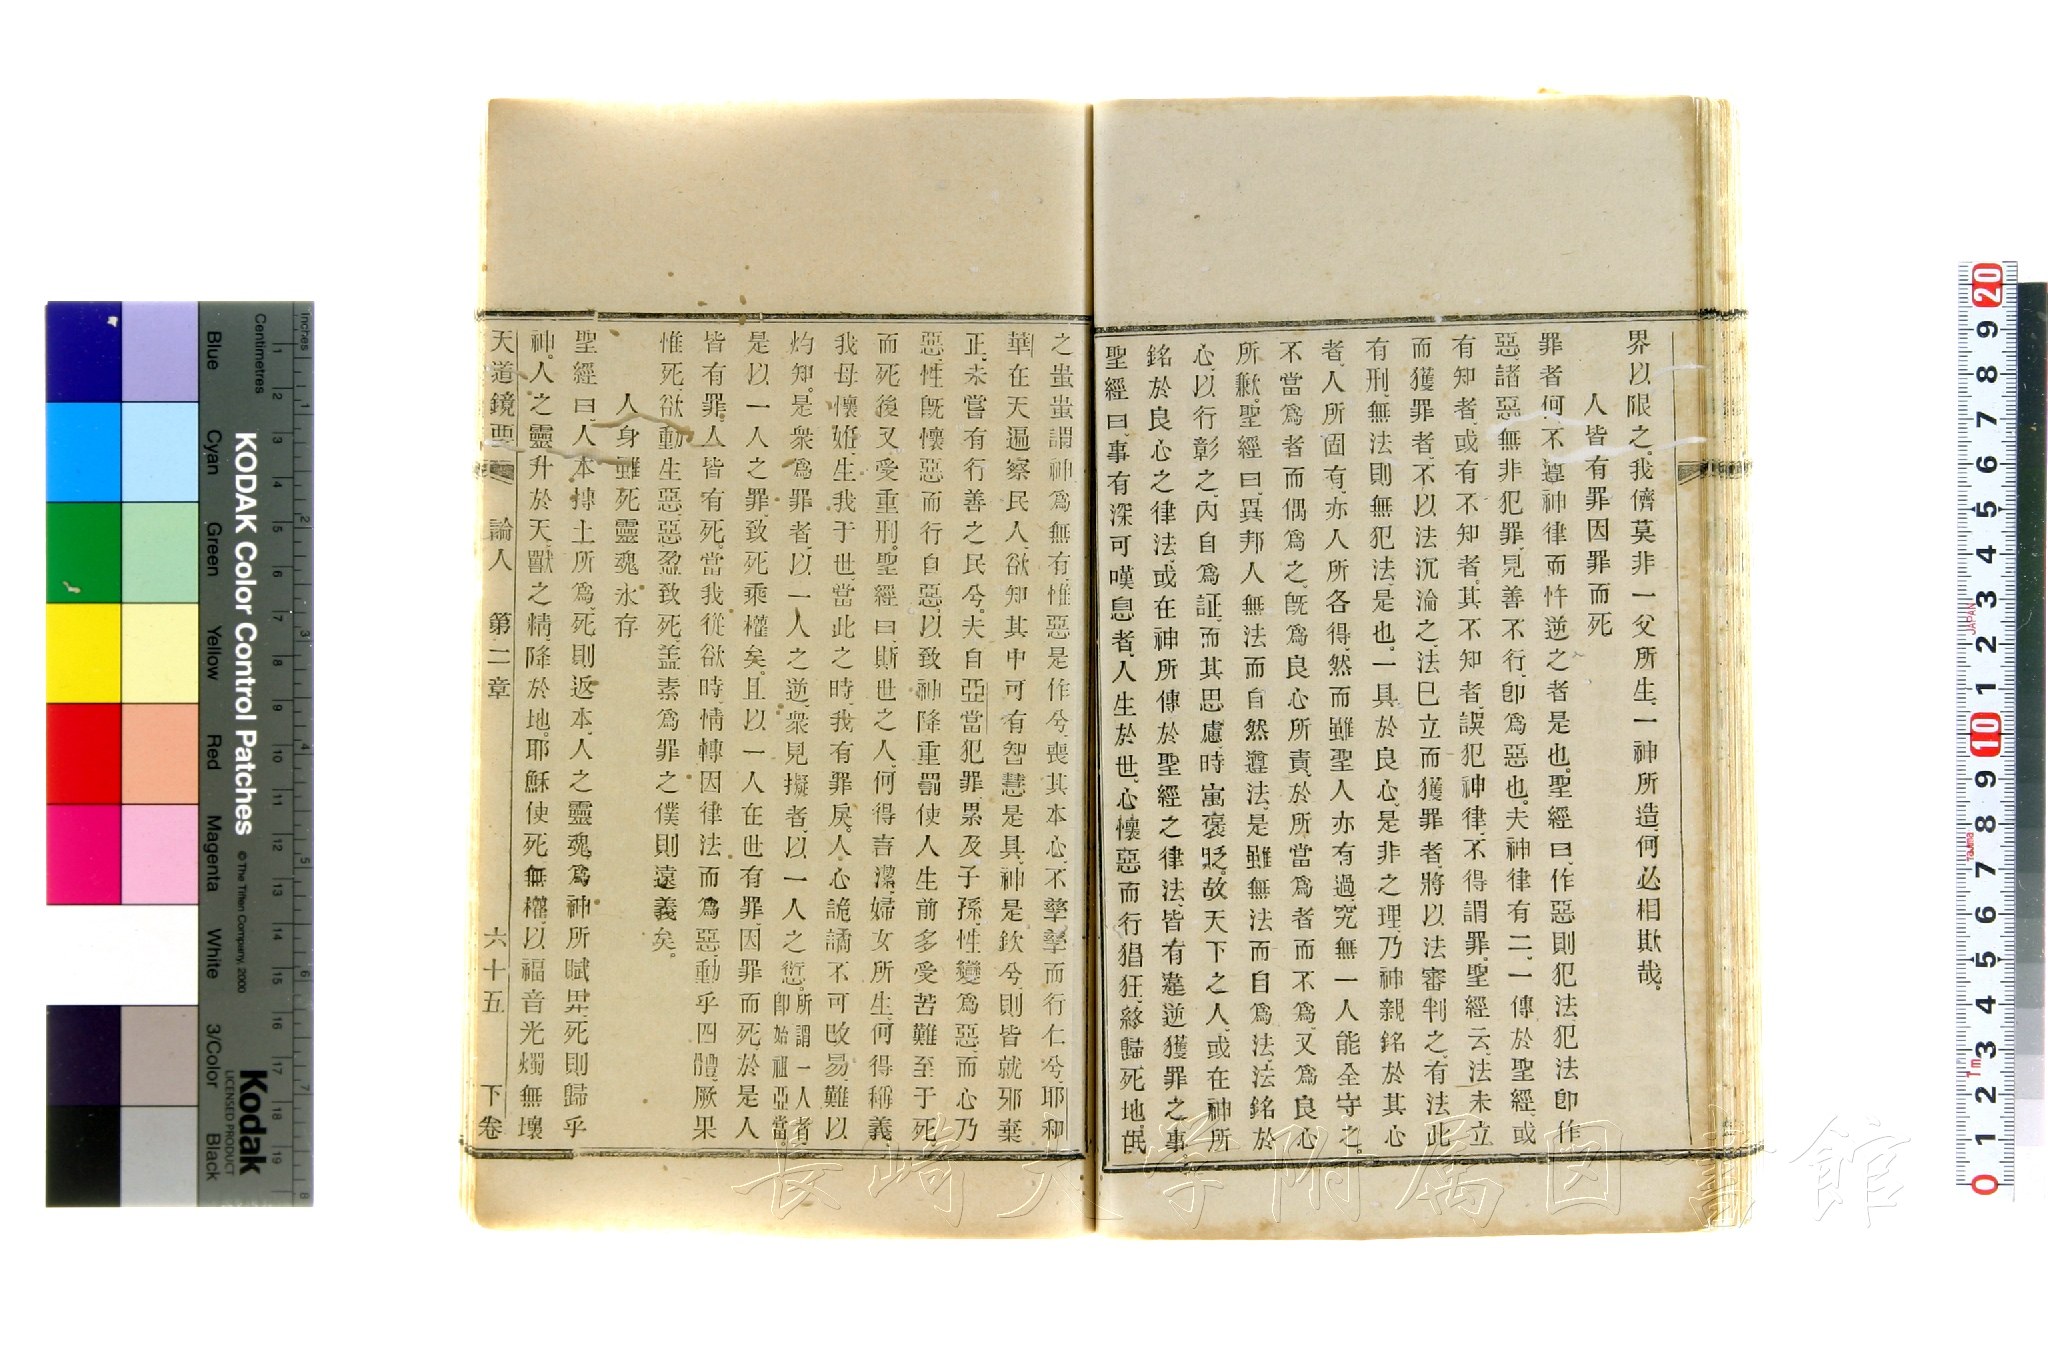 界以限之。我儕莫非一父所生、一神所造、何必相欺哉。
人皆有罪因罪而死
罪者何、不遵神律而忤逆之者是也。聖經曰、作惡則犯法、犯法卽作
惡、諸惡無非犯罪、見善不行、卽爲惡也。夫神律有二、一傳於聖經、或
有知者、或有不知者。其不知者、誤犯神律、不得謂罪。聖經云、法未立
而獲罪者、不以法沉淪之、法已立而獲罪者、將以法審判之、有法此
有刑、無法則無犯法、是也。一具於良心、是非之理、乃神親銘於其心
者、人所固有、亦人所各得、然而雖聖人亦有過、究無一人能全守之。
不當爲者而偶爲之、旣爲良心所責、於所當爲者而不爲、又爲良心
所歉。聖經曰、異邦人無法、而自然遵法、是雖無法而自爲法、法銘於
心、以行彰之、內自爲証、而其思慮、時寓褒貶。故天下之人、或在神所
銘於良心之律法、或在神所傳於聖經之律法、皆有違逆獲罪之事
聖經曰、事有深可嘆息者、人生於世、心懷惡而行猖狂、終歸死地、氓
之蚩蚩、謂神爲無有、惟惡是作兮、喪其本心、不孳孳而行仁兮、耶和
華在天、遍察民人、欲知其中可有智慧是具、神是欽兮、則皆就邪棄
正、未嘗有行善之民兮。夫自亞當犯罪、累及子孫、性變爲惡、而心乃
惡、性旣懷惡、而行自惡、以致神降重罰、使人生前多受苦難、至于死
而死後又受重刑。聖經曰、斯世之人、何得言潔、婦女所生、何得稱義、
我母懷姙、生我于世、當此之時、我有罪戾。人心詭譎、不可改易、難以
灼知。是衆爲罪者、以一人之逆、衆見擬者、以一人之愆。所謂一人者、卽始祖亞當。
是以一人之罪、致死乘權矣。且以一人在世有罪、因罪而死、於是人
皆有罪、人皆有死。當我從欲時、情轉因律法而爲惡、動乎四體、厥果
惟死、欲動生惡、惡盈致死、盖素爲罪之僕、則遠義矣。
人身雖死靈魂永存
聖經曰、人本摶土所爲、死則返本、人之靈魂、爲神所賦畀、死則歸乎
神。人之靈升於天、獸之精降於地。耶穌使死無權、以福音光燭無壞
天道鏡要 論人 第二章 六十五 下卷
KODAK Color Control Patches
© The Tiffen Company, 2000
Kodak
LICENSED PRODUCT
Inches
Centimetres
Blue
Cyan
Green
Yellow
Red
Magenta
White
3/Color
Black
JAPAN
長崎大学附属図書館